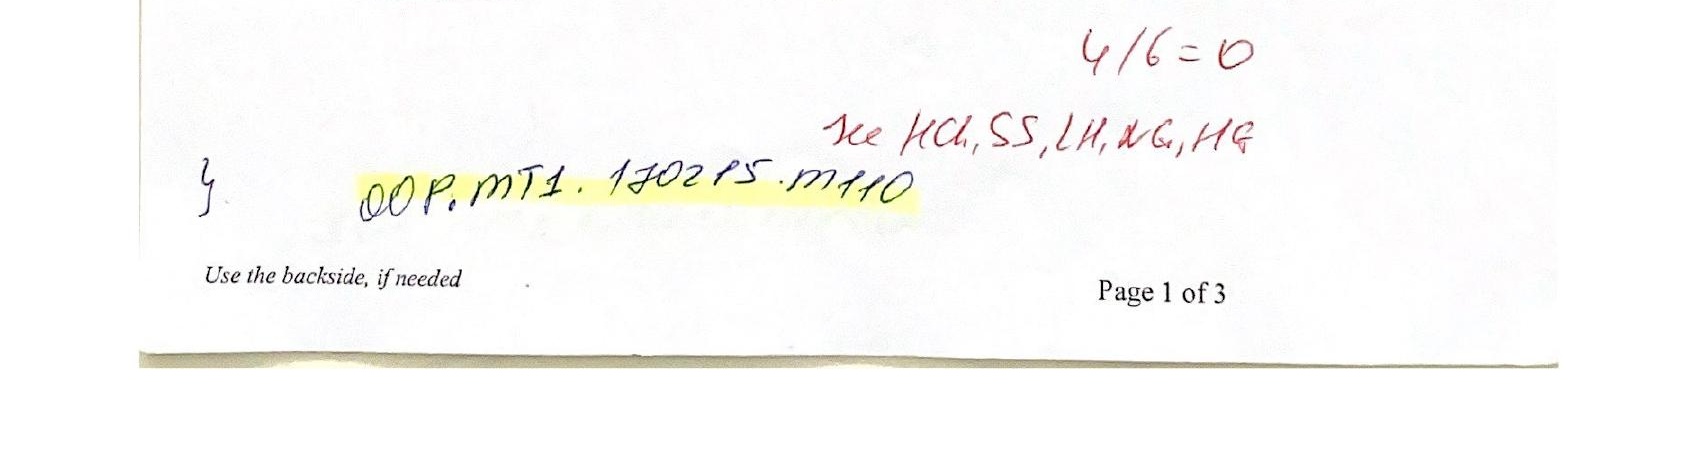 4/6=0
See HCh, SS, LH, NG, HG
}
OOP.MT1.170215.M110
Use the backside, if needed
Page 1 of 3